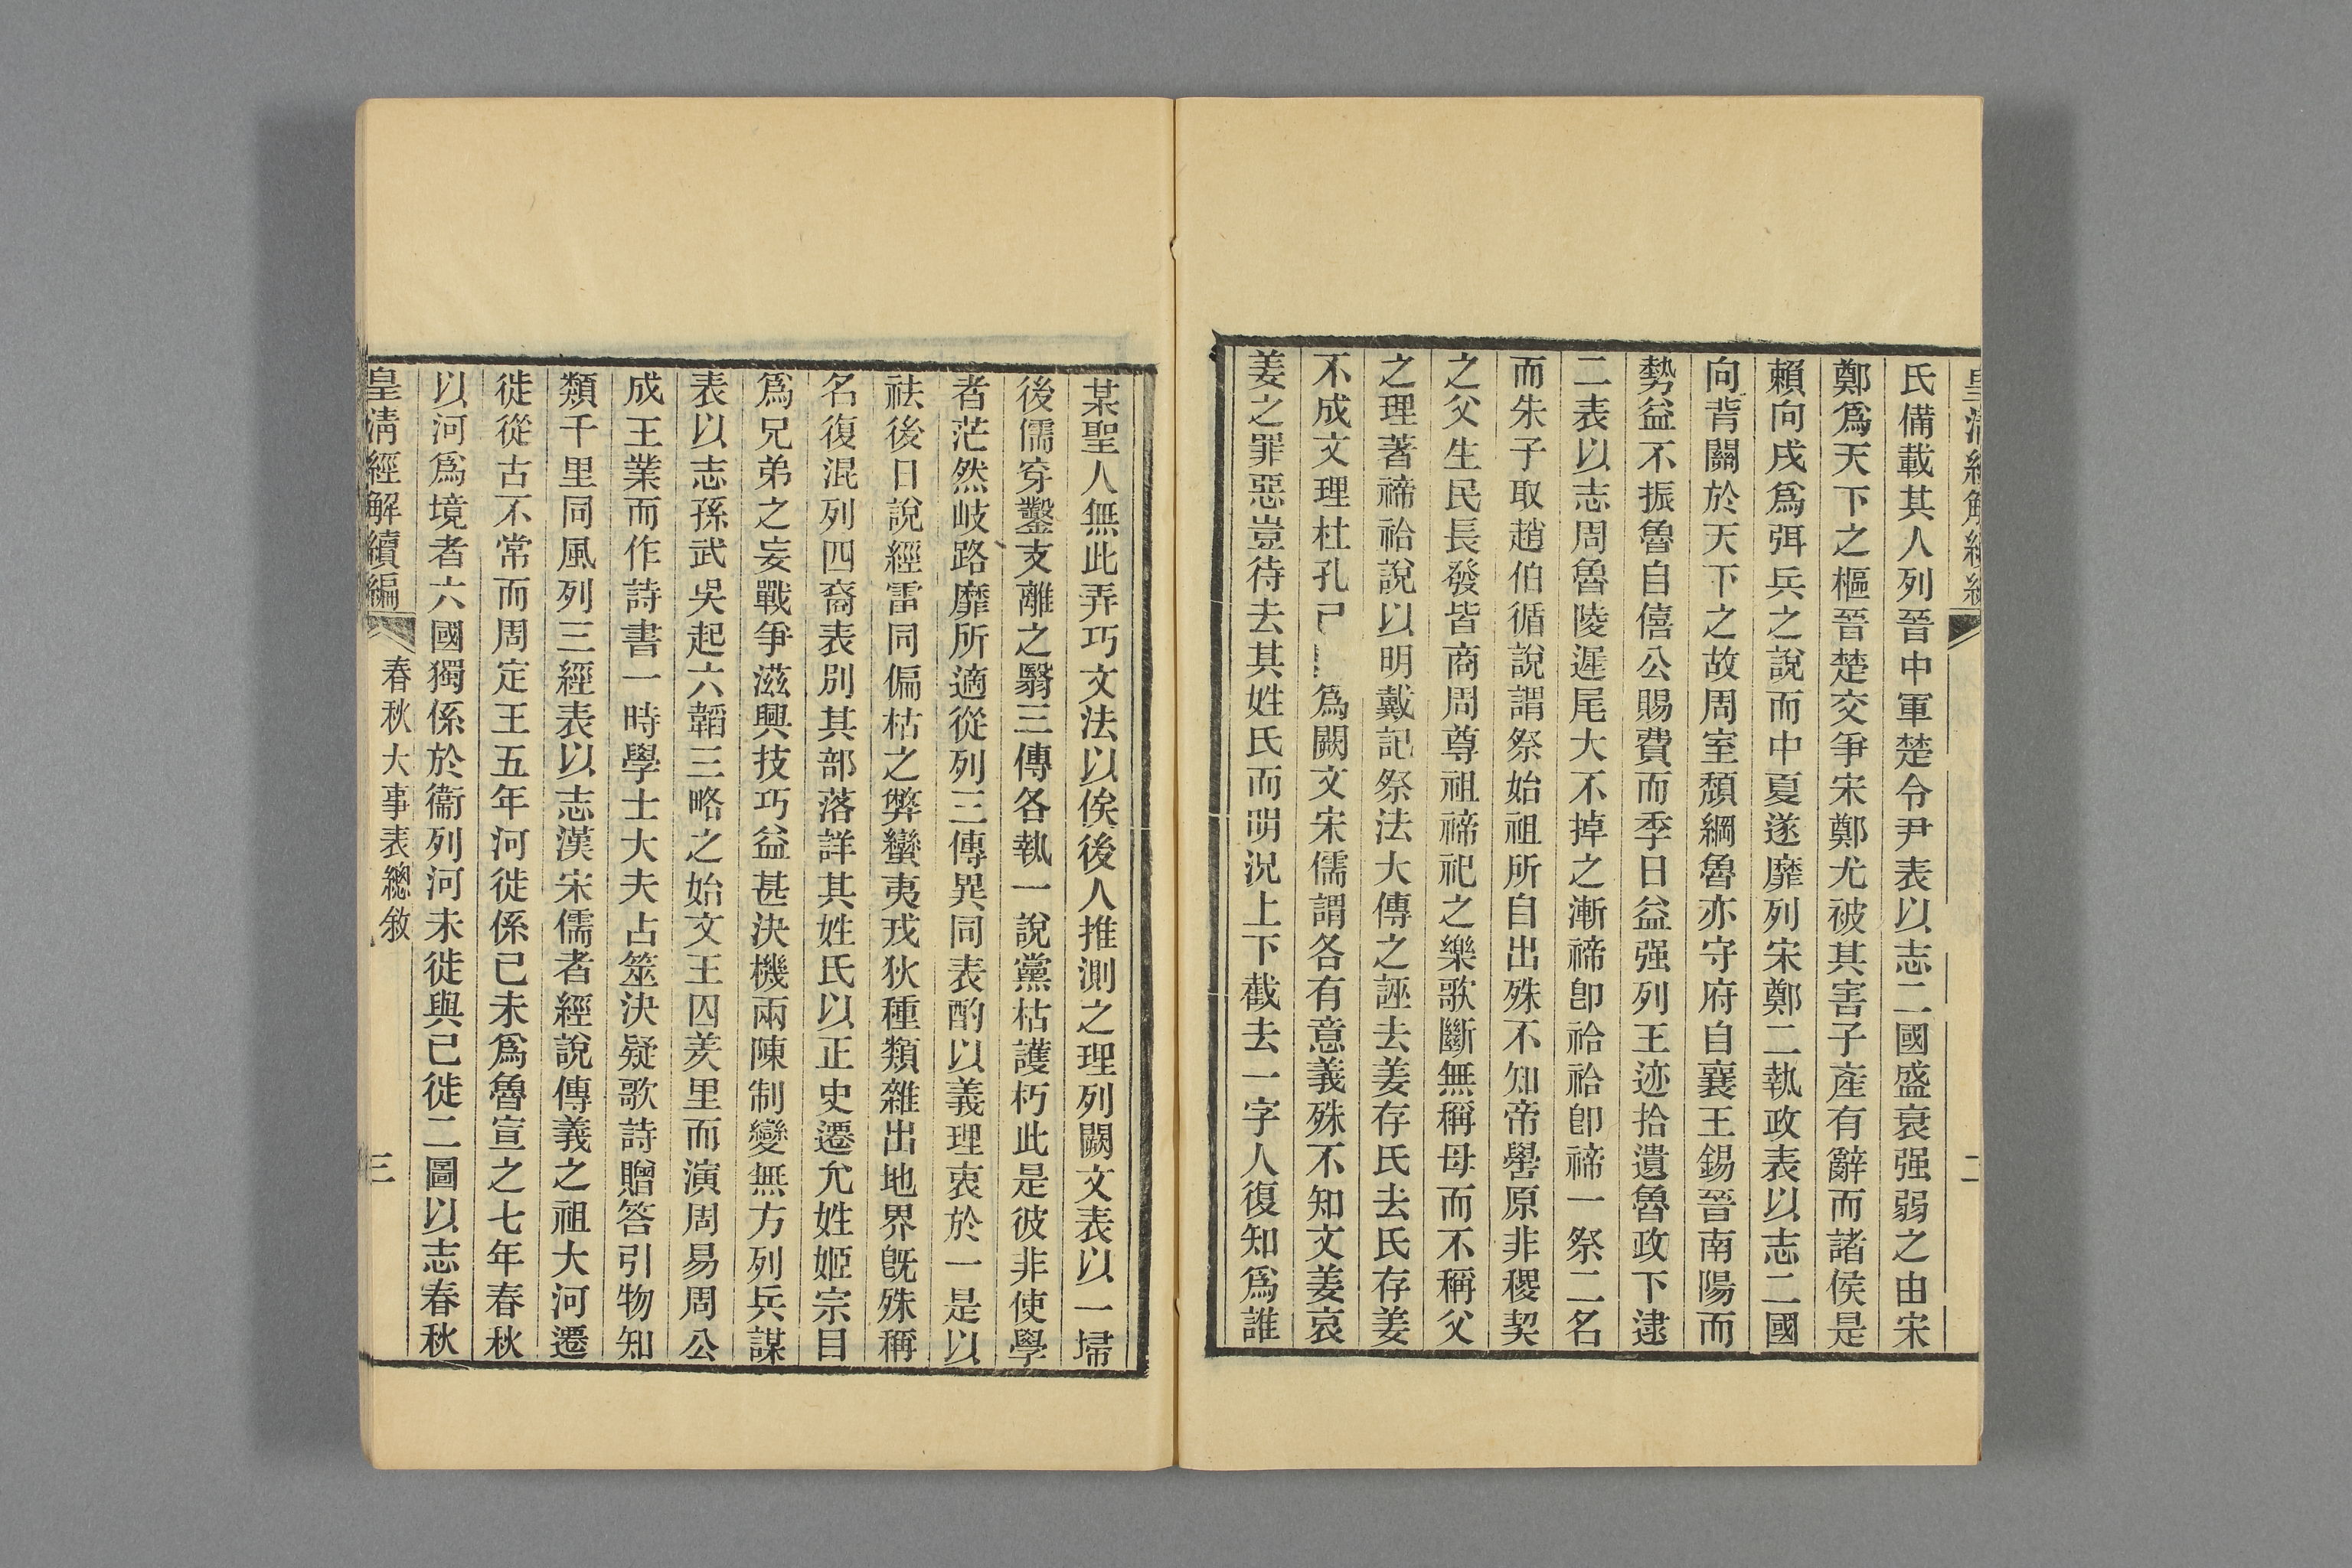 皇清經解續編
二
氏備載其人列晉中軍楚令尹表以志二國盛衰强弱之由宋
鄭爲天下之樞晉楚交爭宋鄭尤被其害子產有辭而諸侯是
賴向戌爲弭兵之說而中夏遂靡列宋鄭二執政表以志二國
向背關於天下之故周室頹綱魯亦守府自襄王錫晉南陽而
勢益不振魯自僖公賜費而季日益强列王迹拾遺魯政下逮
二表以志周魯陵遲尾大不掉之漸禘卽祫祫卽禘一祭二名
而朱子取趙伯循說謂祭始祖所自出殊不知帝嚳原非稷契
之父生民長發皆商周尊祖禘祀之樂歌斷無稱母而不稱父
之理著禘祫說以明戴記祭法大傳之誣去姜存氏去氏存姜
不成文理杜孔爲闕文宋儒謂各有意義殊不知文姜哀
姜之罪惡豈待去其姓氏而明況上下截去一字人復知爲誰
某聖人無此弄巧文法以俟後人推測之理列闕文表以一埽
後儒穿鑿支離之翳三傳各執一說黨枯護朽此是彼非使學
者茫然岐路靡所適從列三傳異同表酌以義理衷於一是以
祛後日說經雷同偏枯之弊蠻夷戎狄種類雜出地界旣殊稱
名復混列四裔表別其部落詳其姓氏以正史遷允姓姬宗目
爲兄弟之妄戰爭滋興技巧益甚決機兩陳制變無方列兵謀
表以志孫武吳起六韜三略之始文王囚羑里而演周易周公
成王業而作詩書一時學士大夫占筮決疑歌詩贈答引物知
類千里同風列三經表以志漢宋儒者經說傳義之祖大河遷
徙從古不常而周定王五年河徙係己未爲魯宣之七年春秋
以河爲境者六國獨係於衞列河未徙與已徙二圖以志春秋
皇清經解續編
春秋大事表總敘
三